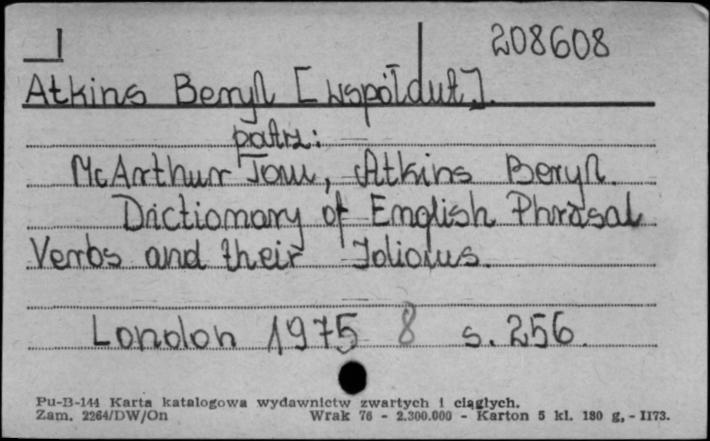 208608
Atkins Beryl [współaut.].
patrz:
McArthur Tom, Atkins Beryl.
Dictionary of English Phrasal
Verbs and their Idioms.
London 1975 8 s. 256.
Pu-B-144 Karta katalogowa wydawnictw zwartych i ciągłych.
Zam. 2264/DW/On Wrak 76 - 2.300.000 - Karton 5 kl. 180 g, - II73.